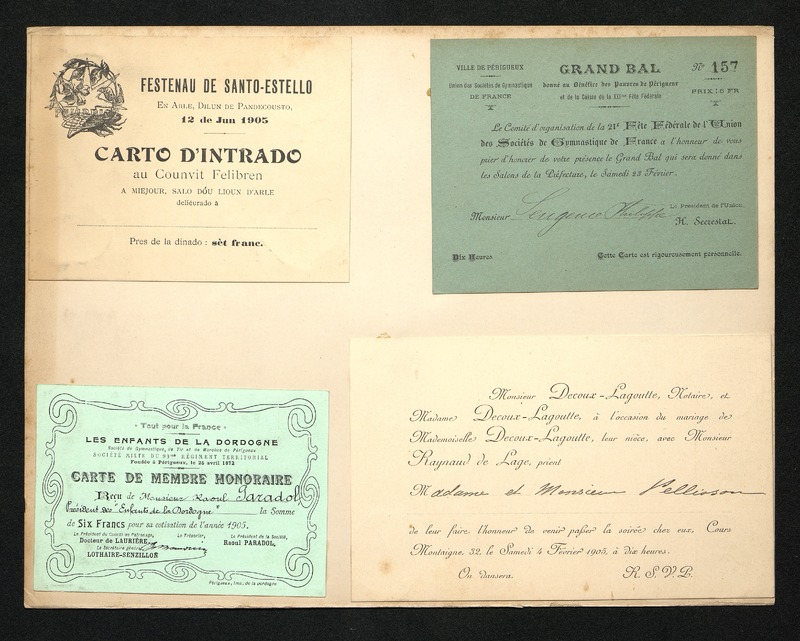 FESTENAU DE SANTO-ESTELLO
EN ARLE, DILUN DE PANDECOUSTO,
12 de Jun 1905
CARTO D'INTRADO
au Counvit Felibren
A MIEJOUR, SALO DÓU LIOUN D'ARLE
deliéurado à
Pres de la dinado : sèt franc.
VILLE DE PÉRIGUEUX
Union des Sociétés de Gymnastique
DE FRANCE
GRAND BAL
donné au Bénéfice des Pauvres de Périgueux
et de la Caisse de la Fête Fédérale
N° 157
PRIX : 6 FR
Le Comité d'organisation de la 21e Fête Fédérale de l'Union
des Sociétés de Gymnastique de France a l'honneur de vous
prier d'honorer de votre présence le Grand Bal qui sera donné dans
les Salons de la Préfecture, le Samedi 23 Février.
Monsieur Philippe
Le Président de l'Union,
H. Secrestat.
Dix Heures
Cette Carte est rigoureusement personnelle.
Tout pour la France
LES ENFANTS DE LA DORDOGNE
Société de Gymnastique, de Tir et de Marches de Périgueux
SOCIÉTÉ MIXTE DU 93me RÉGIMENT TERRITORIAL
Fondée à Périgueux, le 26 avril 1872
CARTE DE MEMBRE HONORAIRE
Reçu de Monsieur Raoul Paradol,
Président des "Enfants de la Dordogne" la Somme
de Six Francs pour sa cotisation de l'année 1905.
Le Président du Comité de Patronage,
Docteur de LAURIÈRE.
Le Secrétaire général,
LOTHAIRE-SENZILLON
Le Trésorier,
Le Président de la Société,
Raoul PARADOL,
Périgueux, Imp. de la Dordogne
Monsieur Decoux-Lagoutte, Notaire, et
Madame Decoux-Lagoutte, à l'occasion du mariage de
Mademoiselle Decoux-Lagoutte, leur nièce, avec Monsieur
Raynaud de Lage, prient
Madame et Monsieur Pellisson
de leur faire l'honneur de venir passer la soirée chez eux, Cours
Montaigne, 32, le Samedi 4 Février 1905, à dix heures.
On dansera.
R. S. V. P.